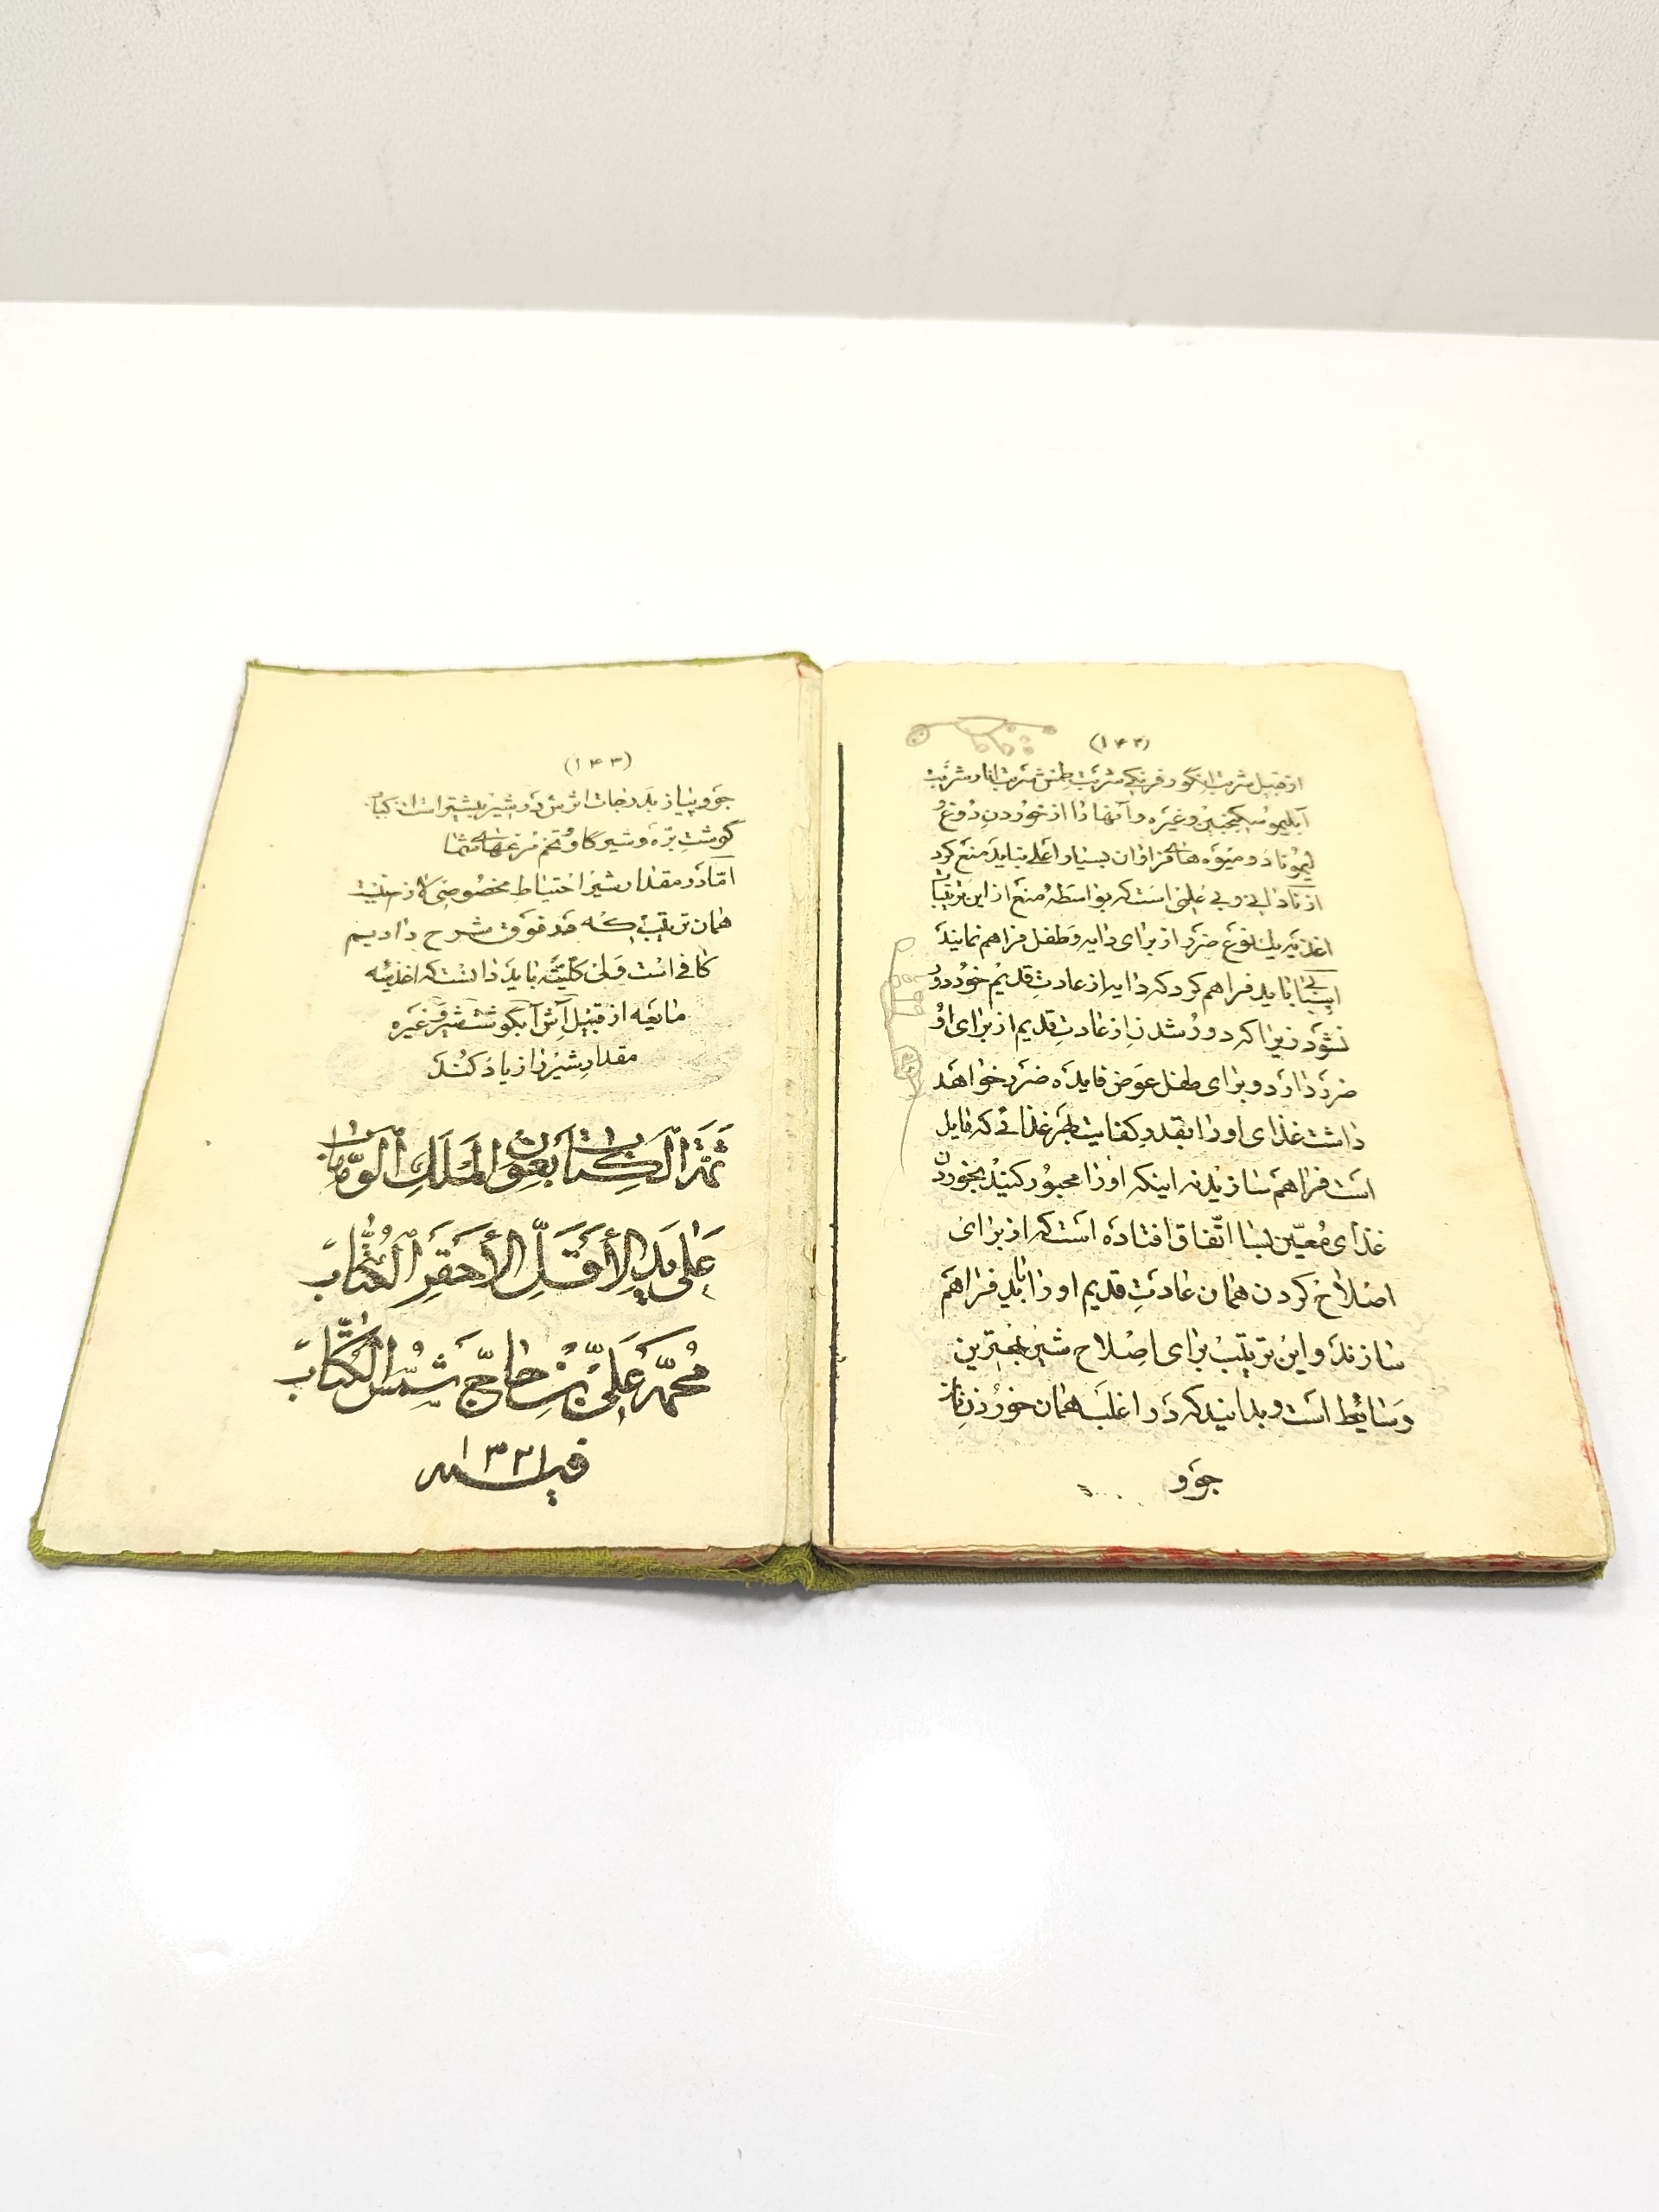 (۱۴۲)
از قبیل شربت انگور فرنگی شربت طمش شربت انار و شربت
آبلیمو سکنجبین وغیره و آنها را از خوردن دوغ
لیموناد و میوه های فراوان بسیار اعلی نباید منع کرد
از نادانی و بی علمی است که بواسطهٔ منع از این ترتیبات
اغذیه یک نوع ضرر از برای دایه و طفل فراهم نمایند
اسبابی باید فراهم کرد که دایه از عادت قدیم خود دور
نشود زیرا که دور شدن از عادت قدیم از برای او
ضرر دارد و برای طفل عوض فایده ضرر خواهد
داشت غذای او را بقدر کفایت بهر غذائی که مایل
است فراهم سازید نه اینکه او را مجبور کنید بخوردن
غذای معیّن بسا اتّفاق افتاده است که از برای
اصلاح کردن همان عادت قدیم او را باید فراهم
سازند و این ترتیب برای اصلاح شیر بهترین
وسائط است و بدانید که در اغلب همان خوردن نان
جو و
(۱۴۳)
جو و پیاز بدرجات اثرش در شیر بیشتر است از کباب
گوشت برّه و شیر گاو و تخم مرغهای شما
امّا در مقدار شیر احتیاط مخصوصی لازم نیست
همان ترتیب که در فوق شرح دادیم
کافی است ولی کلّیتة باید دانست که اغذیه
مایعه از قبیل آش آبگوشت شیر وغیره
مقدار شیر را زیاد کند
تمّت الکتاب بعون الملک الوهّاب
علی ید الأقلّ الأحقر الکتّاب
محمّد علی بن حاجّ شمس الکتّاب
فی سنه ۱۳۲۱